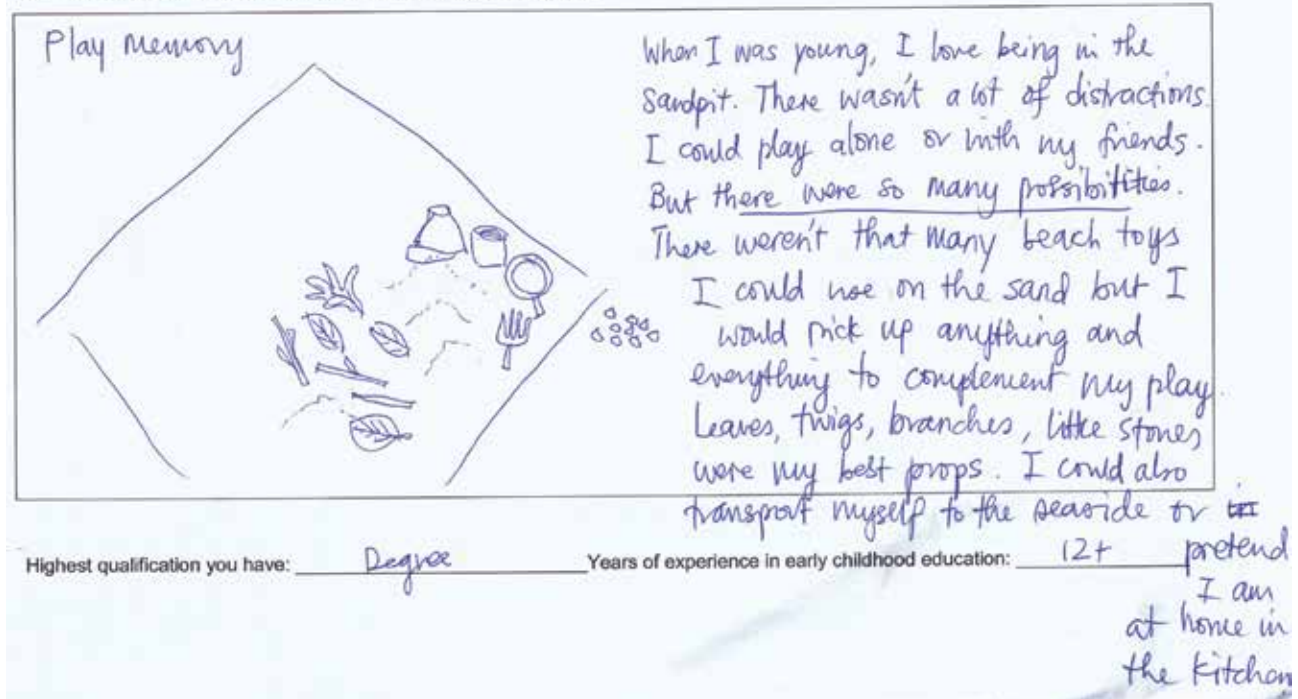 Play Memory
When I was young, I love being in the
Sandpit. There wasn't a lot of distractions.
I could play alone or with my friends.
But there were so many possibilities.
There weren't that many beach toys
I could use on the sand but I
would pick up anything and
everything to complement my play.
Leaves, twigs, branches, little stones
were my best props. I could also
transport myself to the seaside or
pretend
I am
at home in
the kitchen
Highest qualification you have: Degree Years of experience in early childhood education: 12+